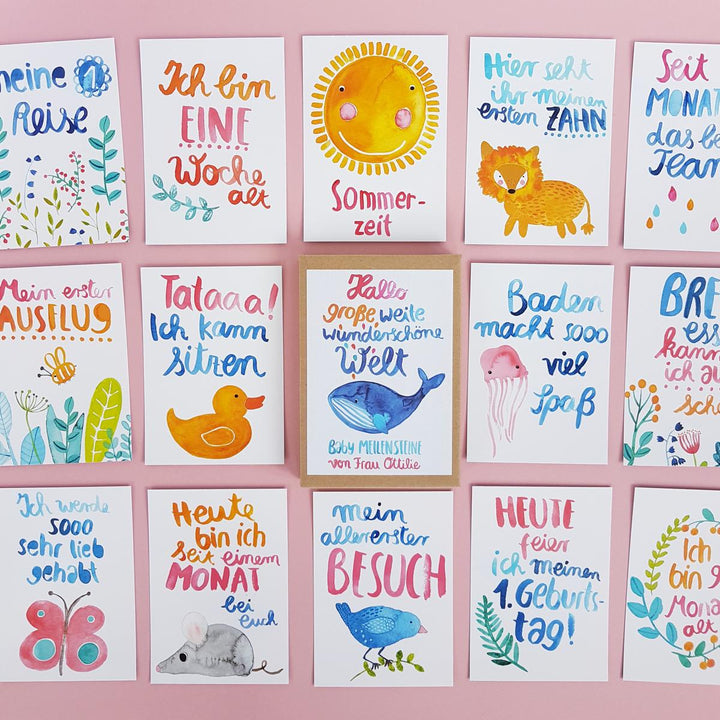 meine 1.
Reise
Ich bin
EINE
Woche
alt
Sommer-
zeit
Hier seht
ihr meinen
ersten ZAHN
Seit
MONAT
das be
Team
Mein erster
AUSFLUG
Tataaa!
Ich kann
sitzen
Hallo
große weite
wunderschöne
Welt
BABY MEILENSTEINE
von Frau Ottilie
Baden
macht sooo
viel
Spaß
BRE
ess
kann
ich au
scho
Ich werde
sooo
sehr lieb
gehabt
Heute
bin ich
seit einem
MONAT
bei
euch
mein
allererster
BESUCH
HEUTE
feier
ich meinen
1. Geburts-
tag!
Ich
bin
Mona
alt